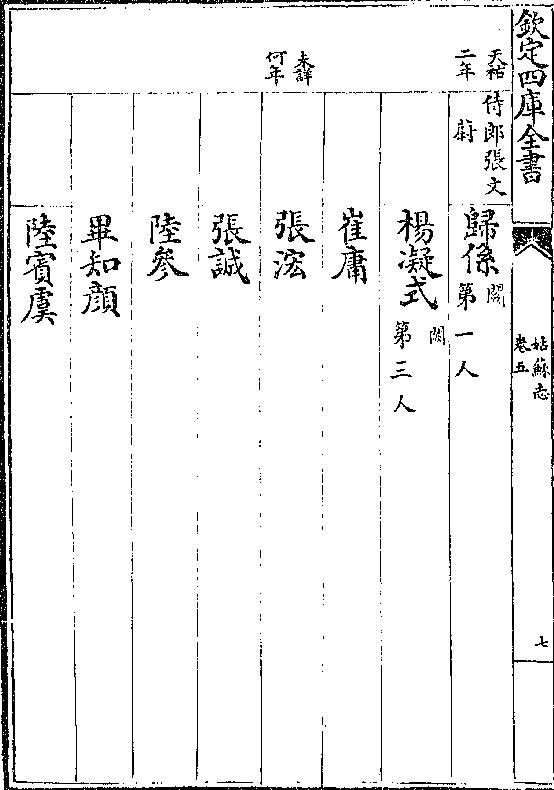 欽定四庫全書
姑蘇志
卷五
七
天祐
二年
侍郎張文
蔚
歸係 闕
第一人
楊凝式 闕
第三人
崔庸
未詳
何年
張浤
張諴
陸參
畢知顔
陸賓虞